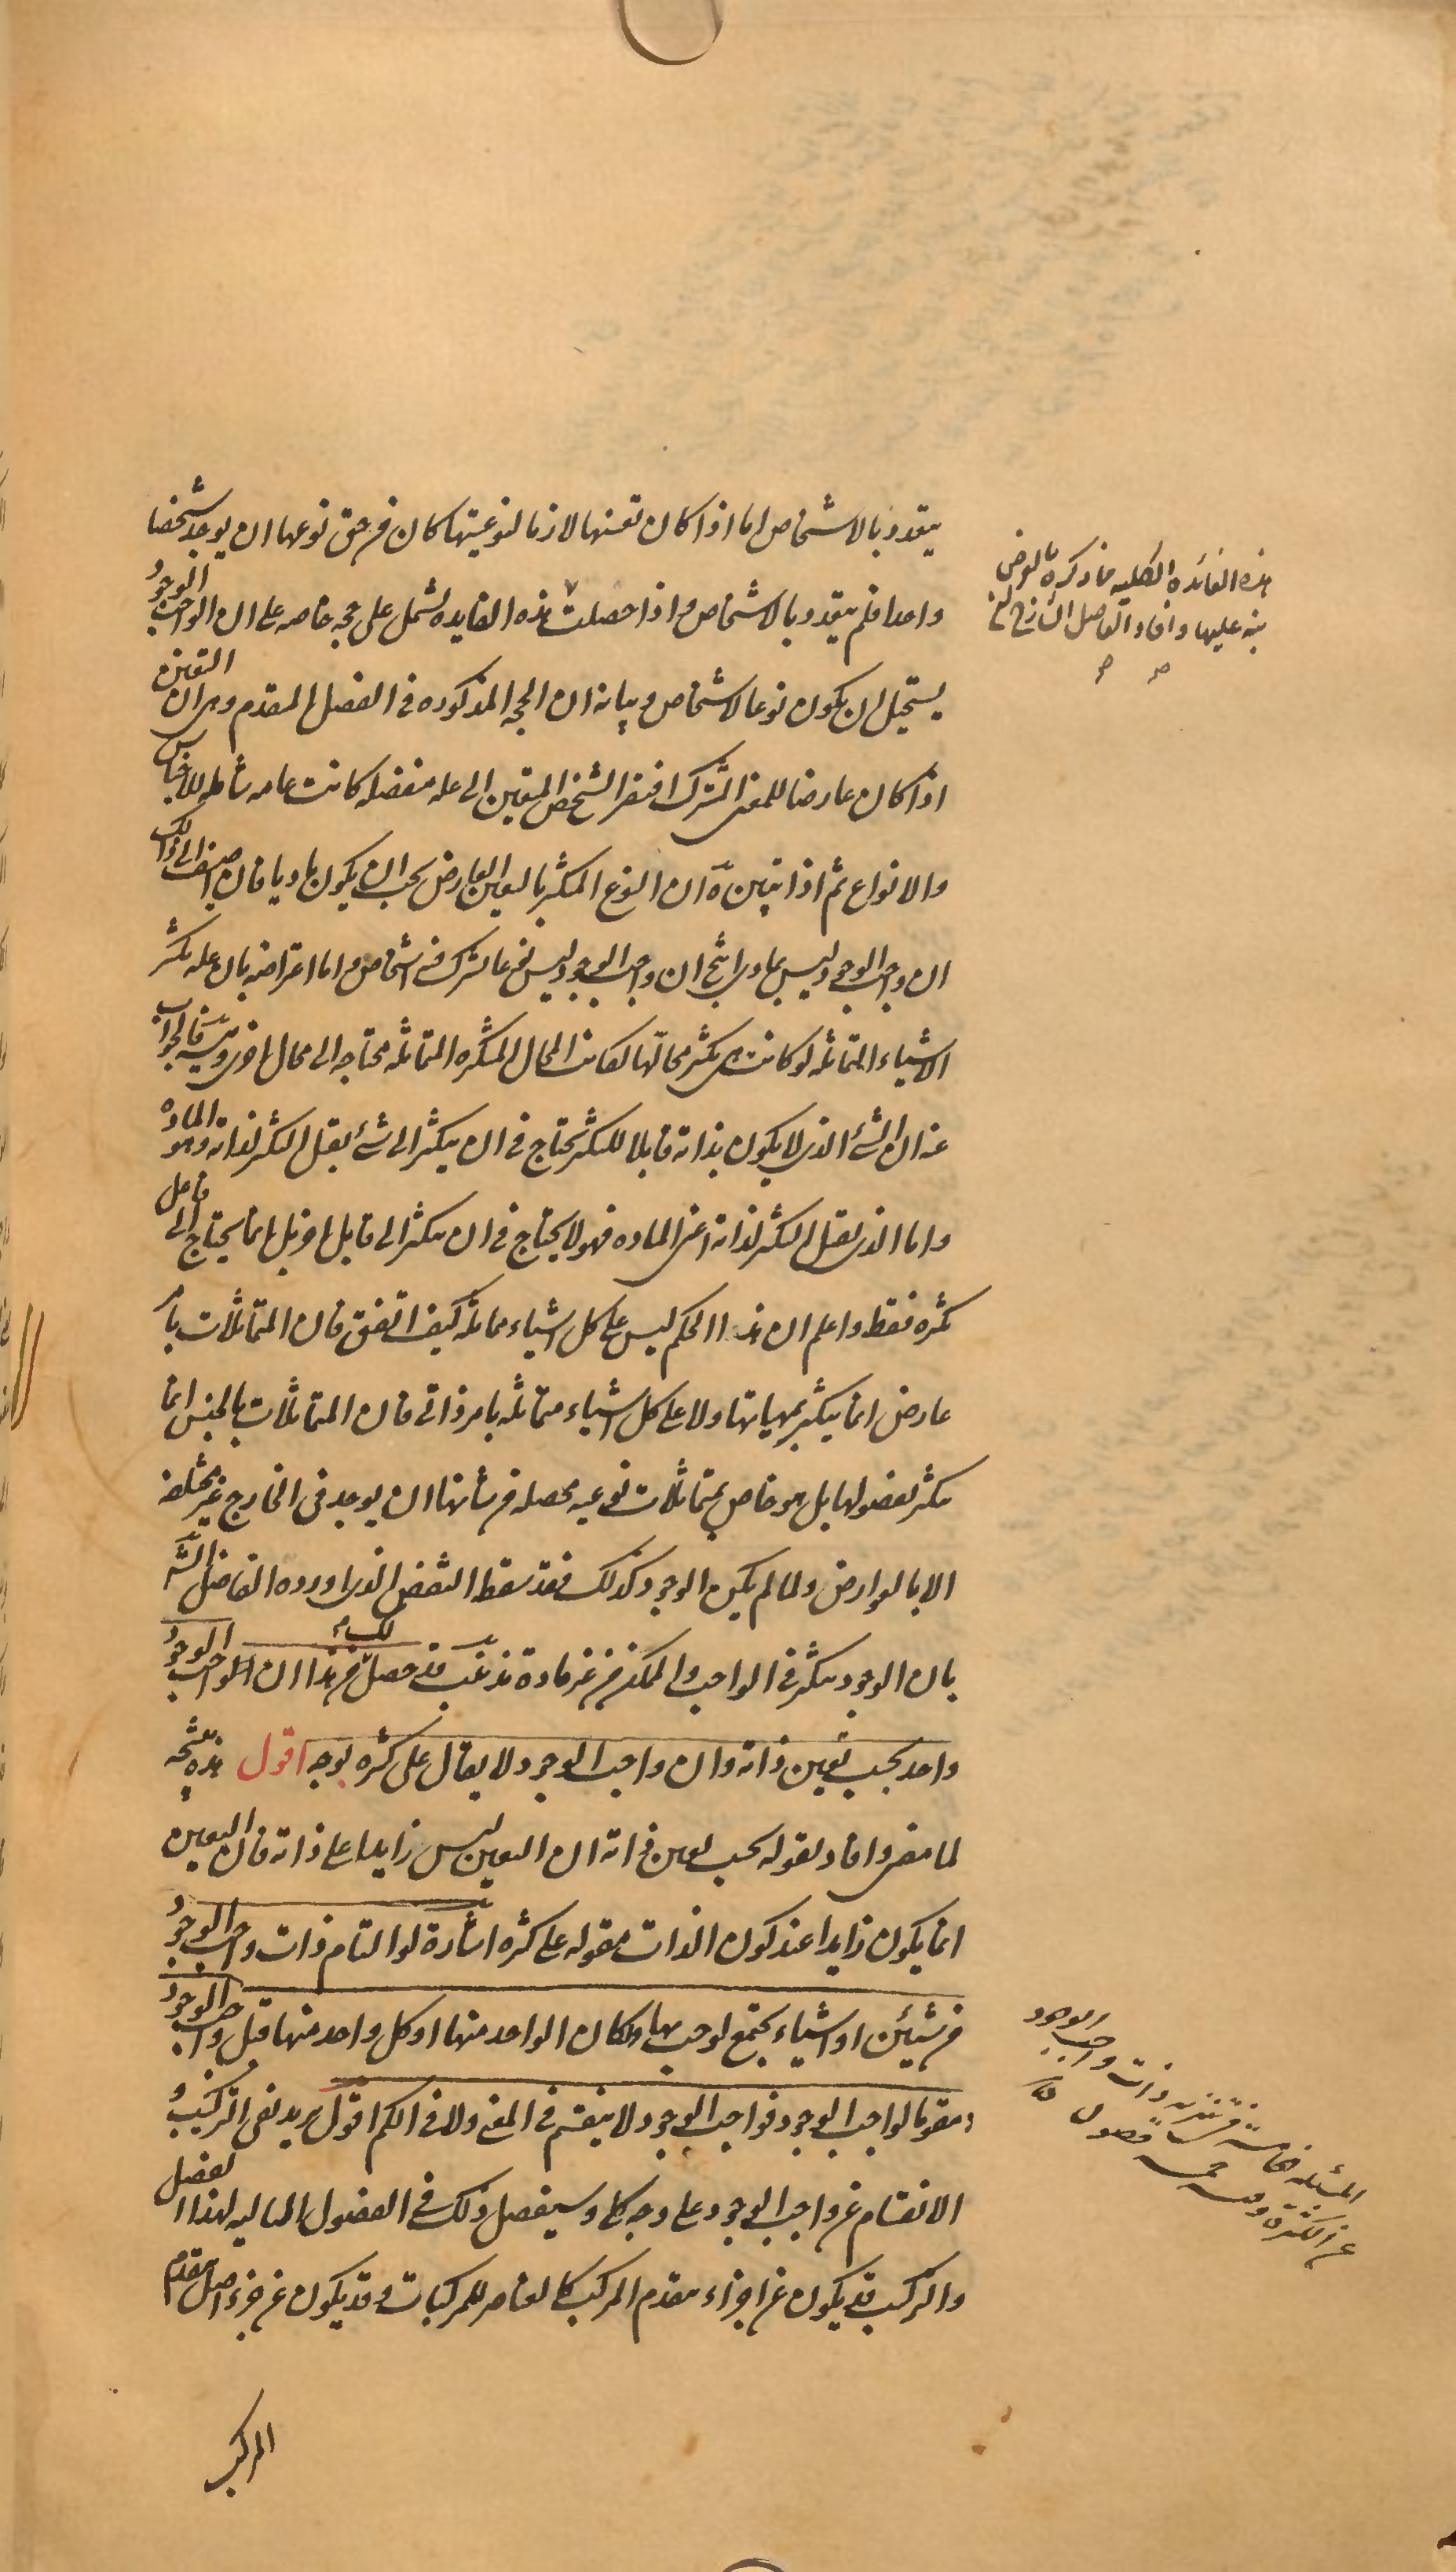 يتعدد بالاشخاص اما اذا كان تعينها لازما لنوعيتها كان من حق نوعها ان يوجد شخصا
واحدا فلم يتعدد بالاشخاص واذا حصلت هذه الفايده تشمل على حجه خاصه على ان الواجب الوجود
يستحيل ان يكون نوعا لاشخاص وبيانه ان الحجه المذكوره فى الفصل المتقدم وهى ان التعين
اذا كان عارضا للمعنى المشترك افتقر الشخص المتعين الى عله منفصله كانت عامه شامله للاجناس
والانواع ثم اذا تبين ان النوع المتكثر بالتعين العارض يجب ان يكون ماديا فان اضيف الى ذلك
ان واجب الوجود ليس بمادى انتج ان واجب الوجود ليس نوعا تشترك فيه اشخاص واما اعتراضه بان عله تكثر
الاشياء المتماثله لو كانت هى تكثر محالّها لكانت المحال المتكثره المتماثله محتاجه الى محال اخرى فالجواب
عنه ان الشئ الذى لا يكون بذاته قابلا للتكثر يحتاج فى ان يتكثر الى شئ يقبل التكثر لذاته وهو الماده
واما الذى يقبل التكثر لذاته اعنى الماده فهو لا يحتاج فى ان يتكثر الى قابل اخر بل انما يحتاج الى فاعل
يكثره فقط واعلم ان هذا الحكم ليس على كل اشياء متماثله كيف اتفق فان المتماثلات بامر
عارض انما يتكثر بمهياتها ولا على كل اشياء متماثله بامر ذاتى فان المتماثلات بالجنس انما
تتكثر بفصولها بل هو خاص بمتماثلات نوعيه محصله من شانها ان يوجد فى الخارج غير مختلفه
الا بالعوارض ولما لم يكن الوجود كذلك فقد سقط النقض الذى اورده الفاضل الشه
بان الوجود يتكثر فى الواجب والممكن من غير مادة تذنيب قد حصل من هذا ان الواجب الوجود
واحد بحسب تعين ذاته وان واجب الوجود لا يقال على كثره بوجه اقول هذه نتيجه
لما مضى وافاد بقوله بحسب تعين ذاته ان التعين ليس زايدا على ذاته فان التعين
انما يكون زايدا عند كون الذات مقوله على كثره اشارة لو التام ذات واجب الوجود
من شيئين او اشياء يجتمع لوجب بها ولكان الواحد منها او كل واحد منها قبل واجب الوجود
ومقوما لواجب الوجود فواجب الوجود لا ينقسم فى المعنى ولا فى الكم اقول يريد نفى التركيب و
الانقسام عن واجب الوجود على وجه كلى وسيفصل ذلك فى الفصول التاليه لهذا الفصل
والتركيب قد يكون عن اجزاء يتقدم المركب كالعناصر للمركبات وقد يكون عن جزء اصل يتقدم
المركب
هذه الفائدة الكليه مما ذكره بالعرض
نبه عليها وافاد الفاضل الشارح
المسئلة خامسة فى تنزيه ذات واجب الوجود
عن الكثرة وفيه خمسة فصول